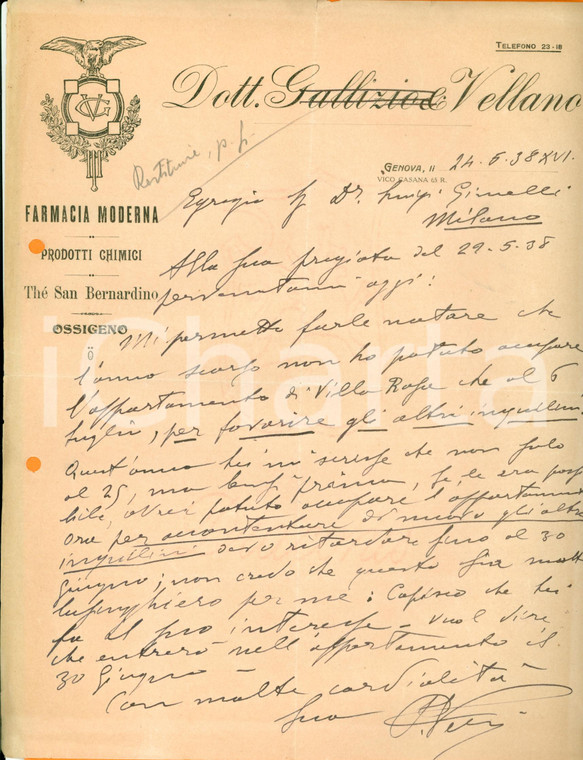 TELEFONO 23-18
Dott. Gallizio & Vellano
GV
Restituire, p. f.
GENOVA, li 24. 6. 38 XVI.
VICO CASANA 65 R.
Egregio Dr. Luigi Ginelli
Milano
FARMACIA MODERNA
PRODOTTI CHIMICI
Thé San Bernardino
OSSIGENO
Alla Sua pregiata del 29-5-38
pervenutami oggi:
Mi permetto farle notare che
l'anno scorso non ho potuto occupare
l'appartamento di Villa Rosa che al 6
luglio, per favorire gli altri inquilini.
Quest'anno Lei mi scrisse che non solo
al 25, ma anche prima, se le era possi
bile, avrei potuto occupare l'appartamento
ora per accontentare di nuovo gli altri
inquilini devo ritardare fino al 30
Giugno; non credo che questo sia molto
lusinghiero per me: Capisco che Lei
fa il suo interesse - vuol dire
che entrerò nell'appartamento il
30 Giugno -
Con molta cordialità
Suo
iCharta